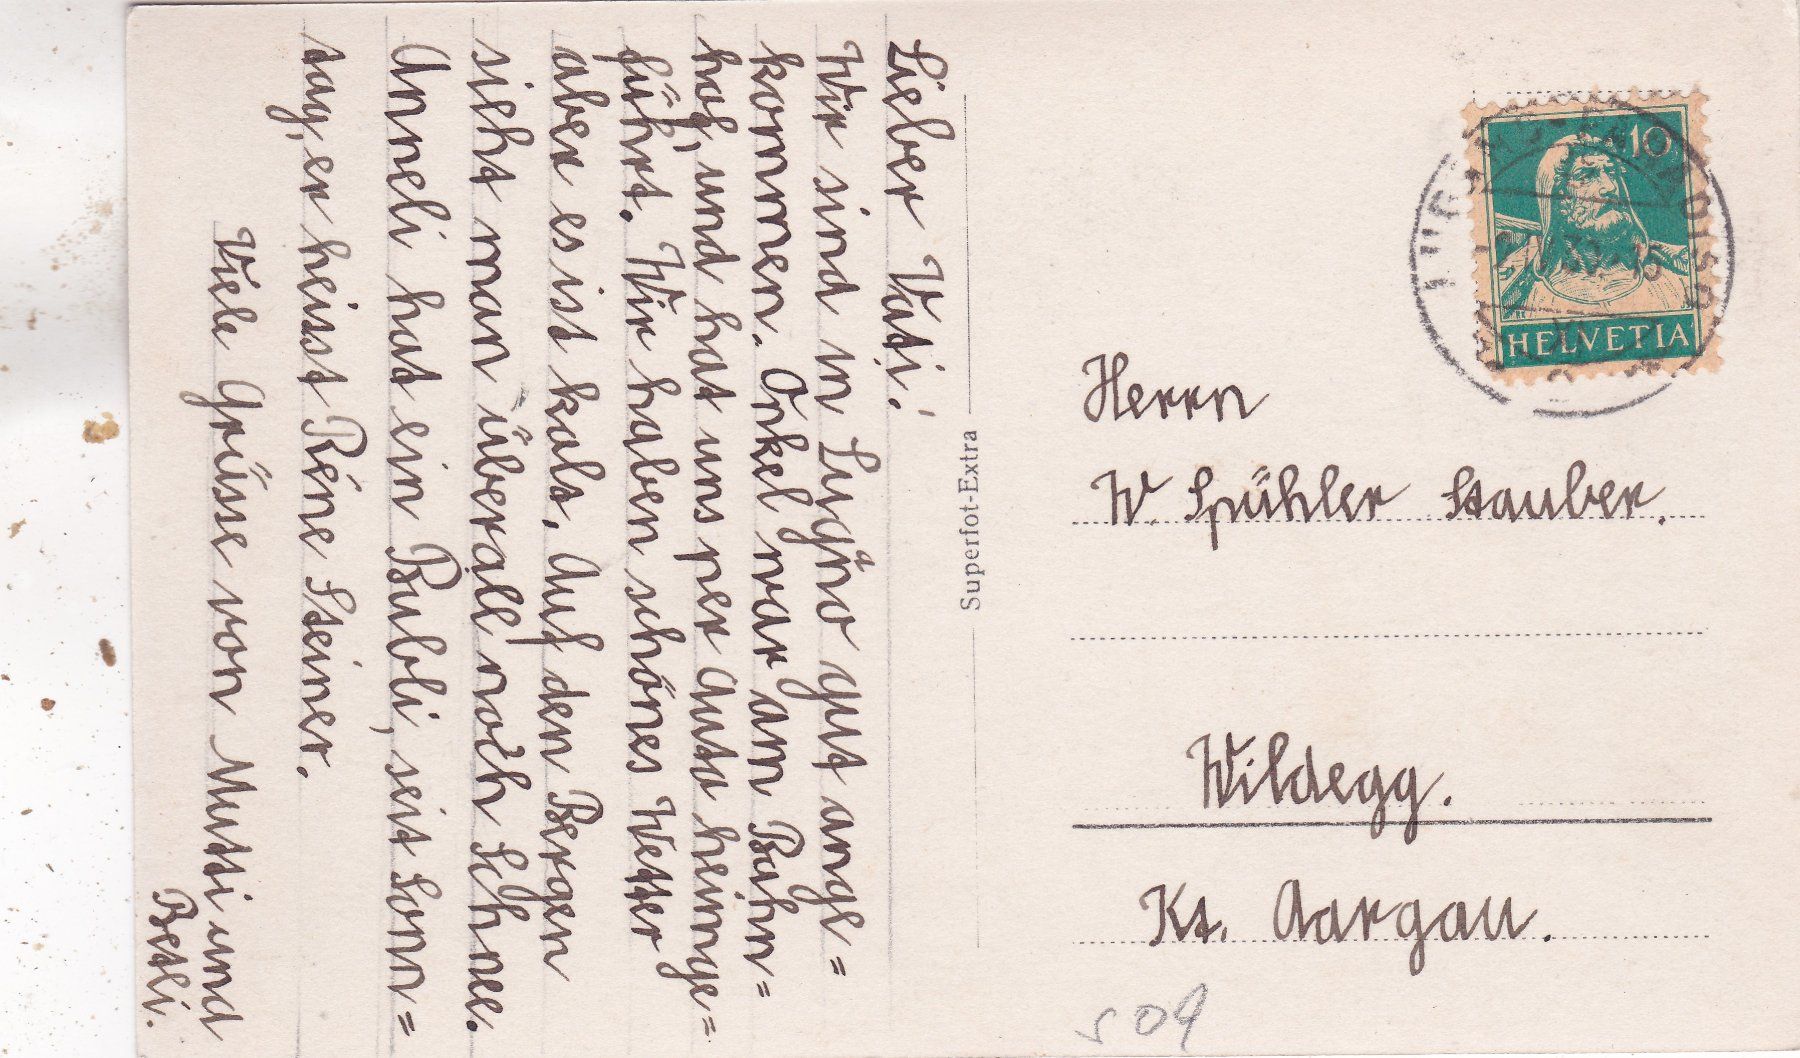 Lieber Vati!
Wir sind in Lugano gut ange=
kommen. Onkel war am Bahn=
hof, und hat uns per Auto heimge=
führt. Wir haben schönes Wetter
aber es ist kalt. Auf den Bergen
sieht man überall noch Schnee.
Anneli hat ein Bubli, seit Sonn=
tag, er heisst Réne Steiner.
Viele Grüsse von Mutti und
Betli.
Superfot-Extra
10
HELVETIA
Herrn
W. Spühler Stauber.
Wildegg.
Kt. Aargau.
509